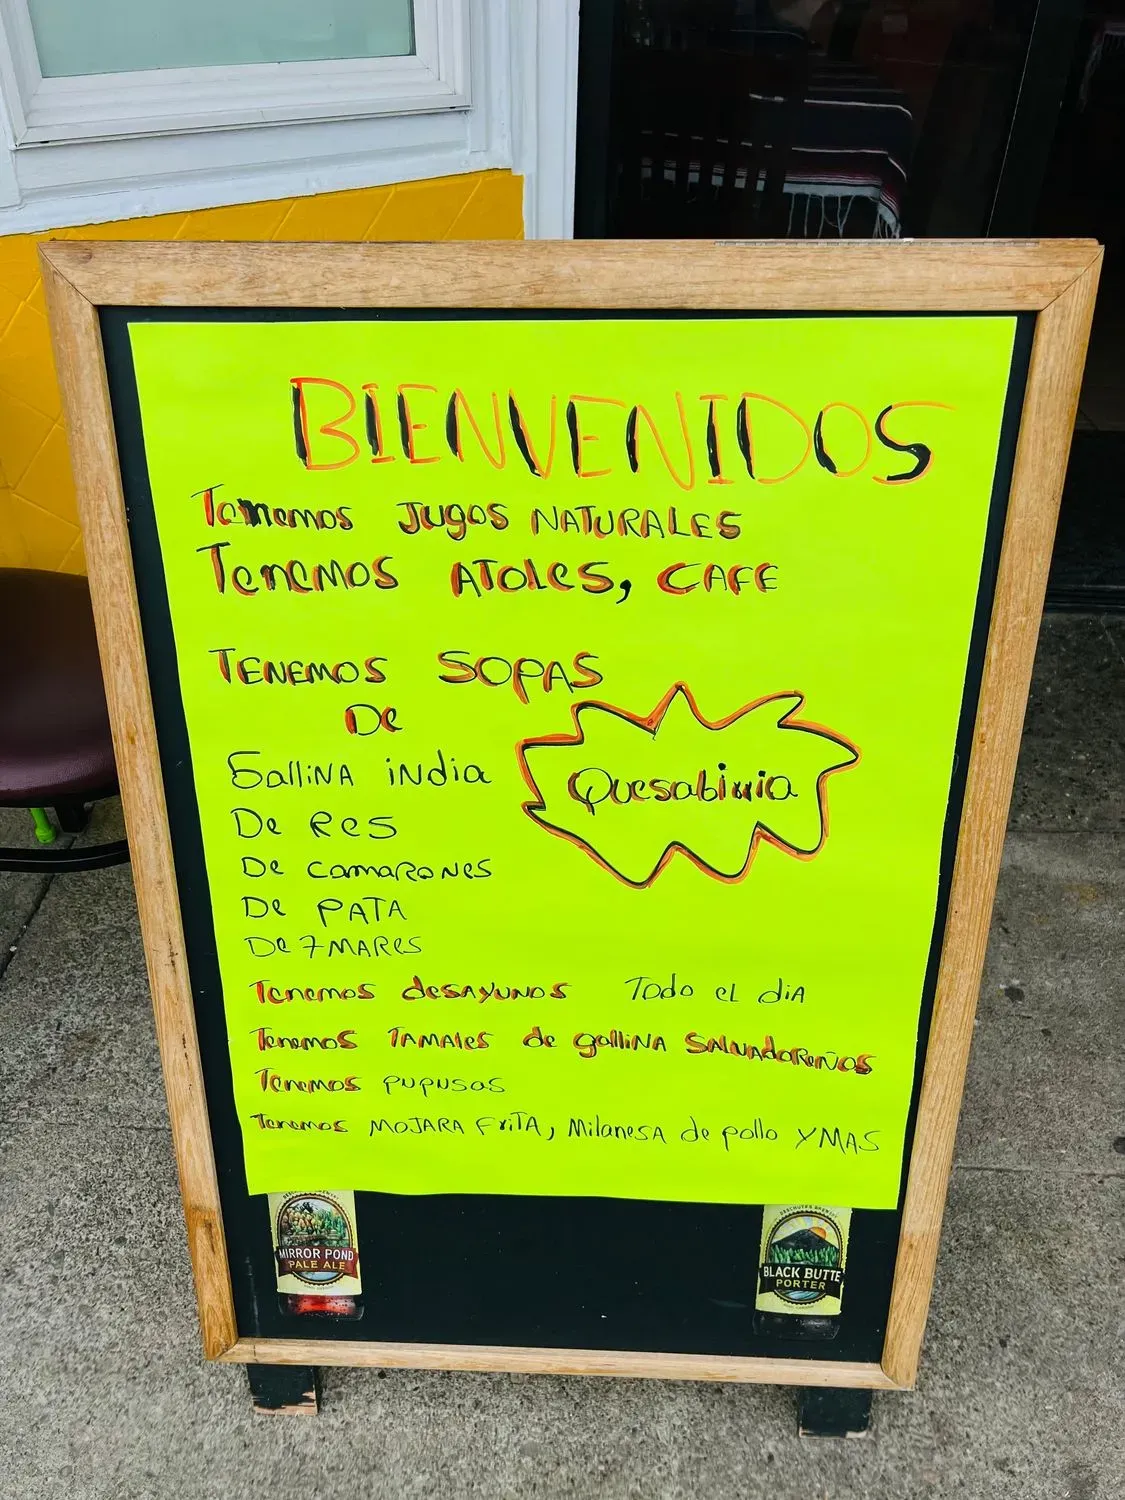 BIENVENIDOS
Tenemos JUGOS NATURALES
Tenemos ATOLES, CAFE
TENEMOS SOPAS
De
Gallina india
De Res
De camarones
De PATA
De 7 MARES
Quesabirria
Tenemos desayunos Todo el dia
Tenemos TAMALES de gallina SALVADOREÑOS
Tenemos pupusas
Tenemos MOJARA FriTA, Milanesa de pollo Y MAS
MIRROR POND
PALE ALE
DESCHUTES BREWERY
BLACK BUTTE
PORTER